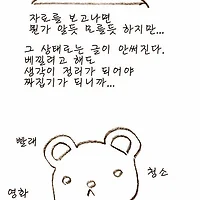 자료를 보고나면
뭔가 알듯 모를듯 하지만...
그 상태로는 글이 안써진다.
베낄려고 해도
생각이 정리가 되어야
짜집기가 되니까...
빨래
청소
영화